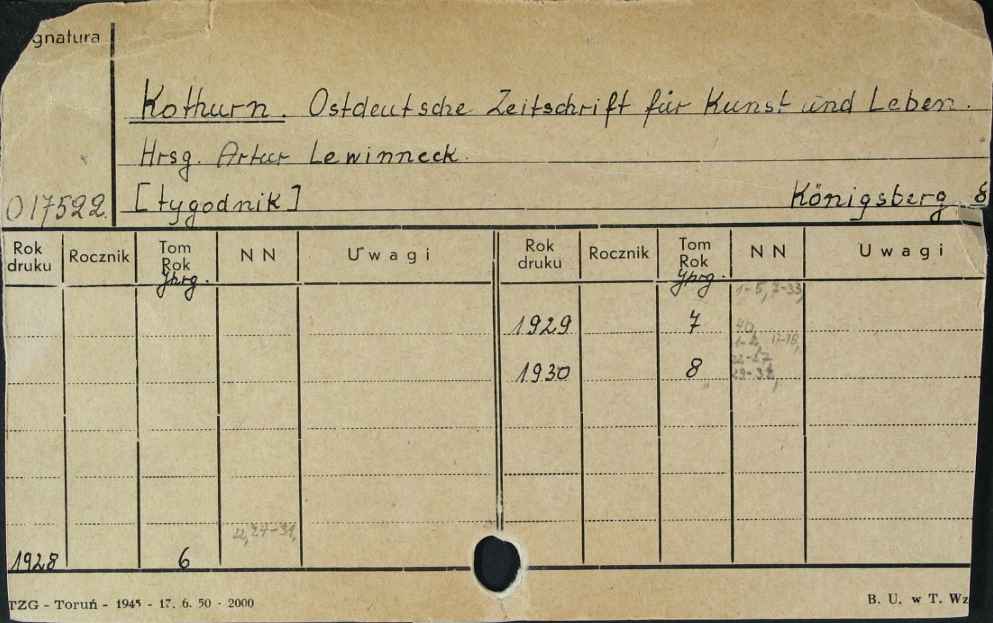 gnatura
Kothurn. Ostdeutsche Zeitschrift für Kunst und Leben.
Hrsg. Artur Lewinneck.
017522. [tygodnik] Königsberg
Rok druku Rocznik Tom Rok Jhrg. NN Uwagi Rok druku Rocznik Tom Rok Jhrg. NN Uwagi
1-5, 7-33,
1929 7 40,
1-2, 11-18,
1930 8 22-27,
29-32,
22, 27-31,
1928 6
TZG - Toruń - 1945 - 17. 6. 50 - 2000 B. U. w T. Wz